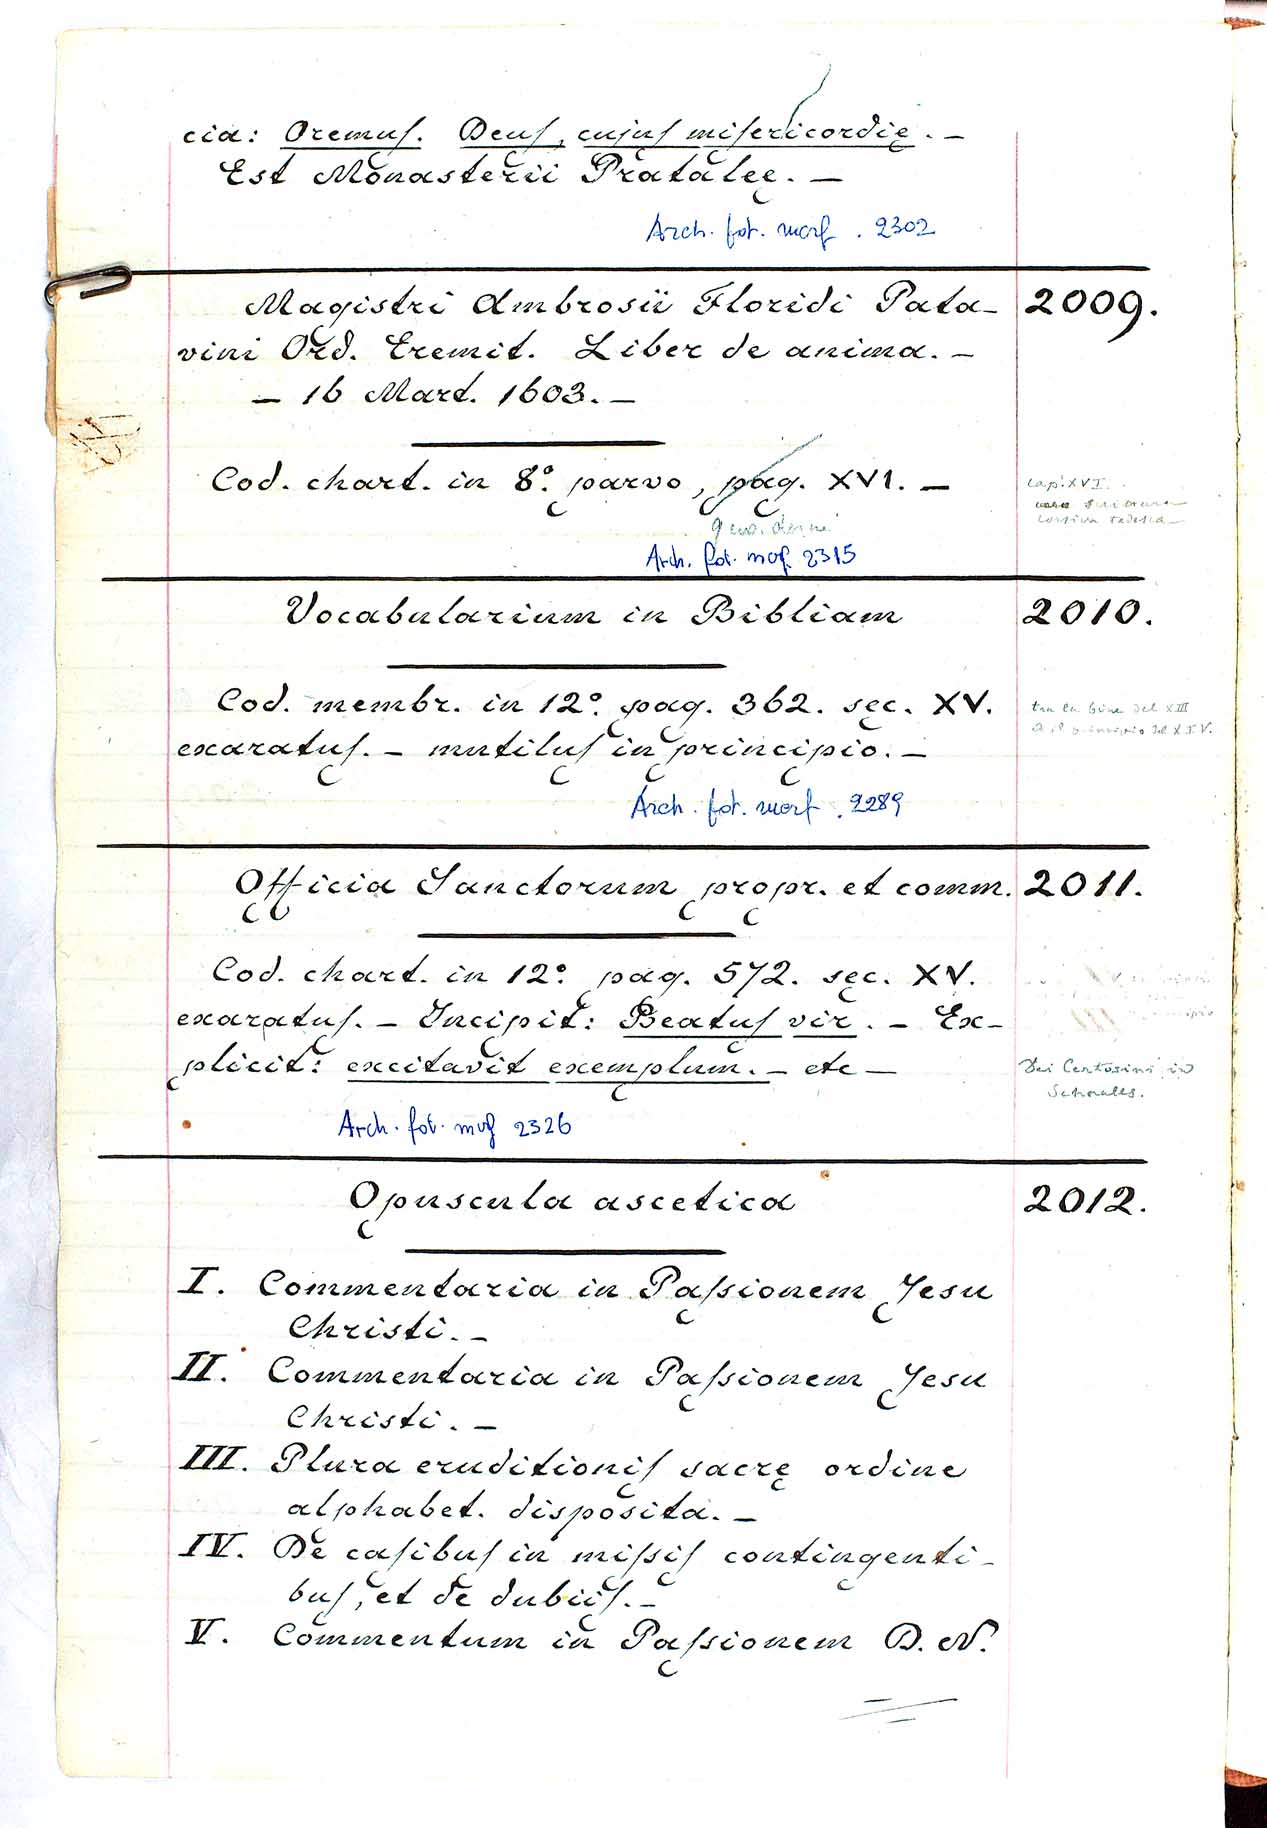 cia: Oremus. Deus, cujus misericordię. —
Est Monasterii Pratalęę. —
Arch. fot. morf. 2302
Magistri Ambrosii Floridi Pata- 2009.
vini Ord. Eremit. Liber de anima. —
— 16 Mart. 1603. —
Cod. chart. in 8.° parvo, pag. XVI. —
cap. XVI.
Arch. fot. mof. 2315
Vocabularium in Bibliam 2010.
Cod. membr. in 12.° pag. 362. sęc. XV.
tra la fine del XIII
exaratus. — mutilus in principio. —
e il principio del XIV.
Arch. fot. morf. 2289
Officia Sanctorum propr. et comm. 2011.
Cod. chart. in 12.° pag. 572. sęc. XV.
exaratus. — Incipit: Beatus vir. — Ex-
plicit: excitavit exemplum. — etc —
Dei Certosini in
Schnalls.
Arch. fot. mof 2326
Opuscula ascetica 2012.
I. Commentaria in Passionem Jesu
Christi. —
II. Commentaria in Passionem Jesu
Christi. —
III. Plura eruditionis sacrę ordine
alphabet. disposita. —
IV. De casibus in missis contingenti-
bus, et de dubiis. —
V. Commentum in Passionem D. N.